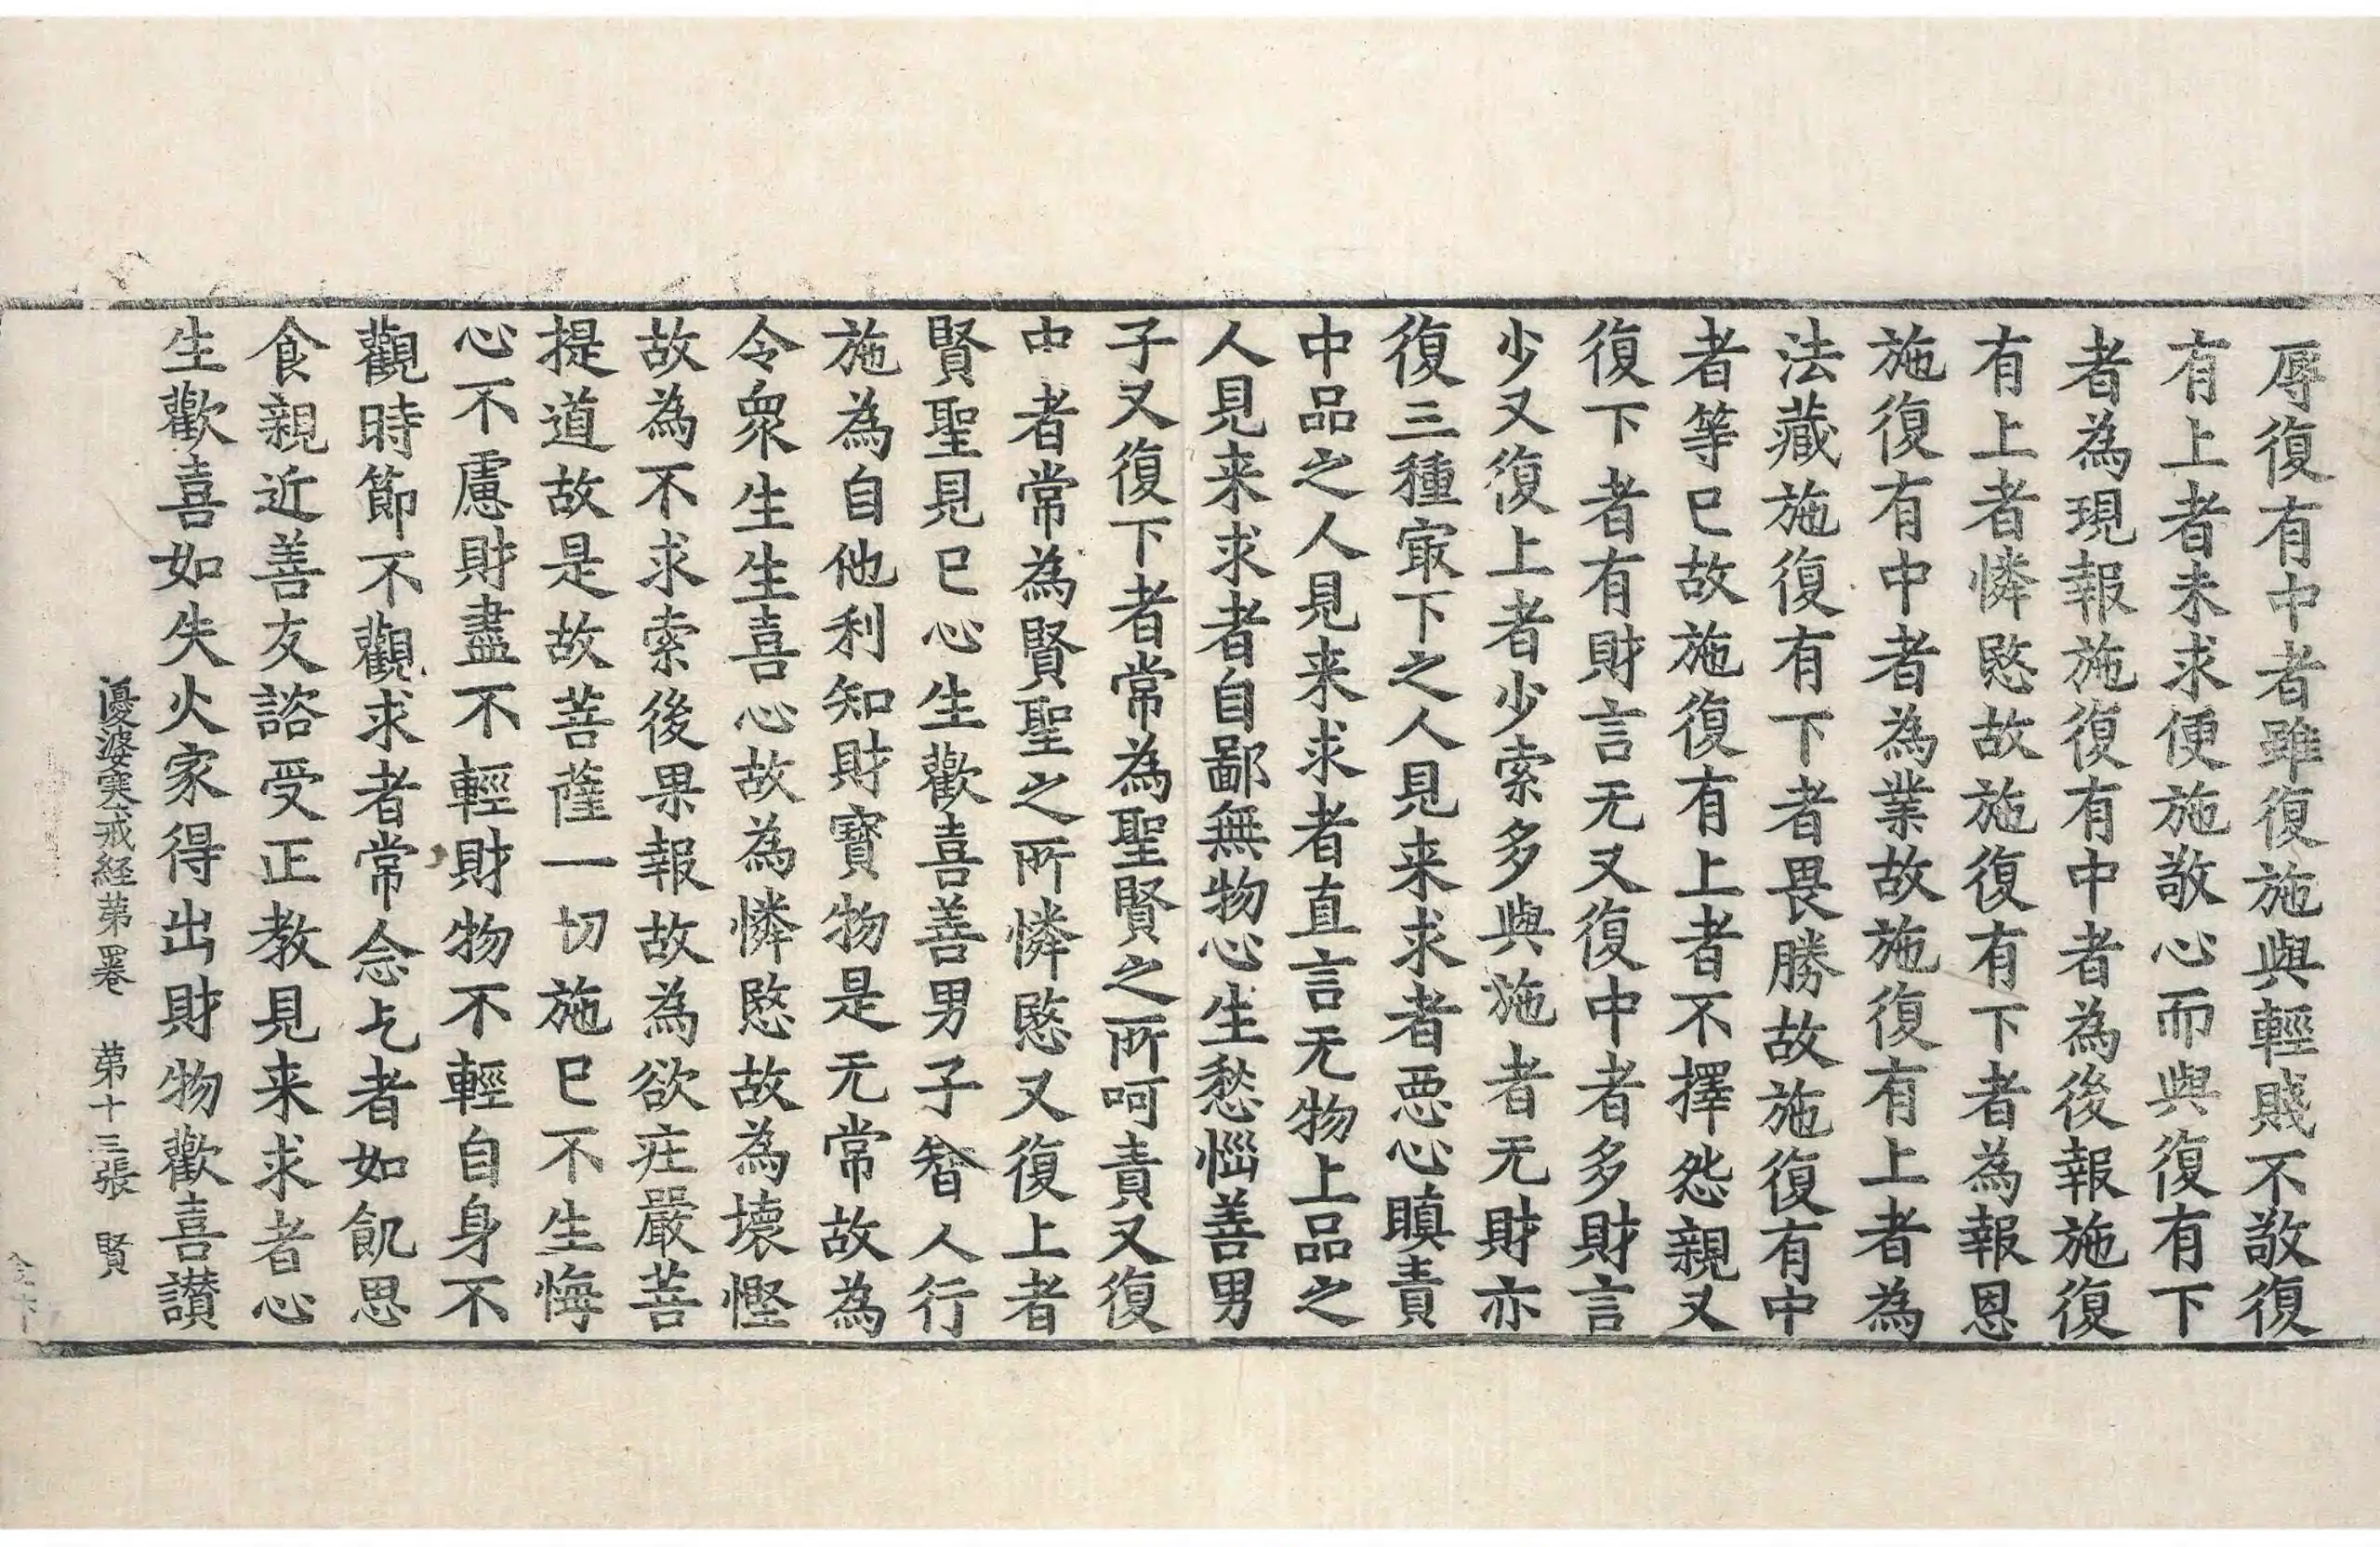 辱復有中者雖復施與輕賤不敬復
有上者未求便施敬心而與復有下
者為現報施復有中者為後報施復
有上者憐愍故施復有下者為報恩
施復有中者為業故施復有上者為
法藏施復有下者畏勝故施復有中
者等已故施復有上者不擇怨親又
復下者有財言无又復中者多財言
少又復上者少索多與施者无財亦
復三種㝡下之人見来求者惡心瞋責
中品之人見来求者直言无物上品之
人見来求者自鄙無物心生愁惱善男
子又復下者常為聖賢之所呵責又復
中者常為賢聖之所憐愍又復上者
賢聖見已心生歡喜善男子智人行
施為自他利知財寶物是无常故為
令衆生生喜心故為憐愍故為壞慳
故為不求索後果報故為欲庄嚴菩
提道故是故菩薩一切施已不生悔
心不慮財盡不輕財物不輕自身不
觀時節不觀求者常念乞者如飢思
食親近善友諮受正教見来求者心
生歡喜如失火家得出財物歡喜讃
優婆塞戒経苐四卷 苐十三張 賢